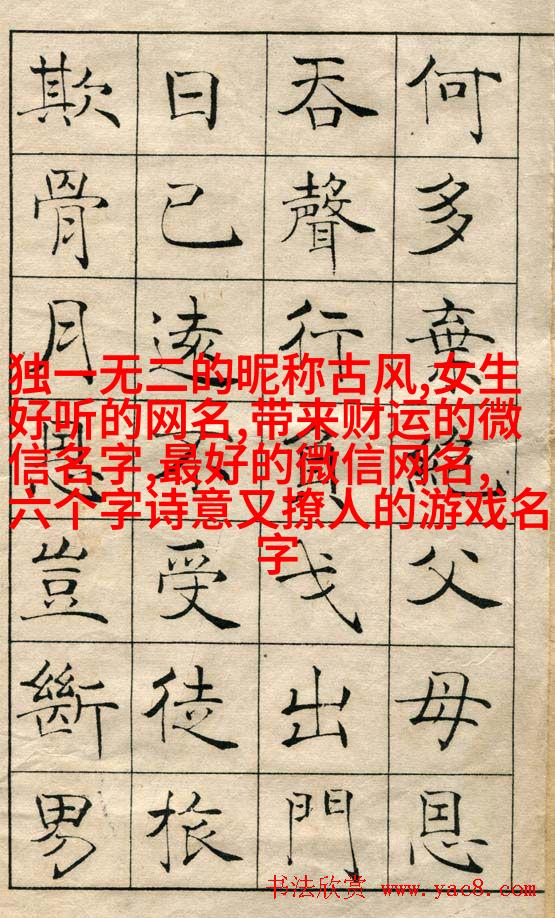 何多棄絕父母恩
吞聲行負戈出門
日已遠不受徒旅
欺骨月恩豈斷男
独一无二的昵称古风,女生
好听的网名,带来财运的微
信名字,最好的微信网名,
六个字诗意又撩人的游戏名
字
书法欣赏 www.yac8.com